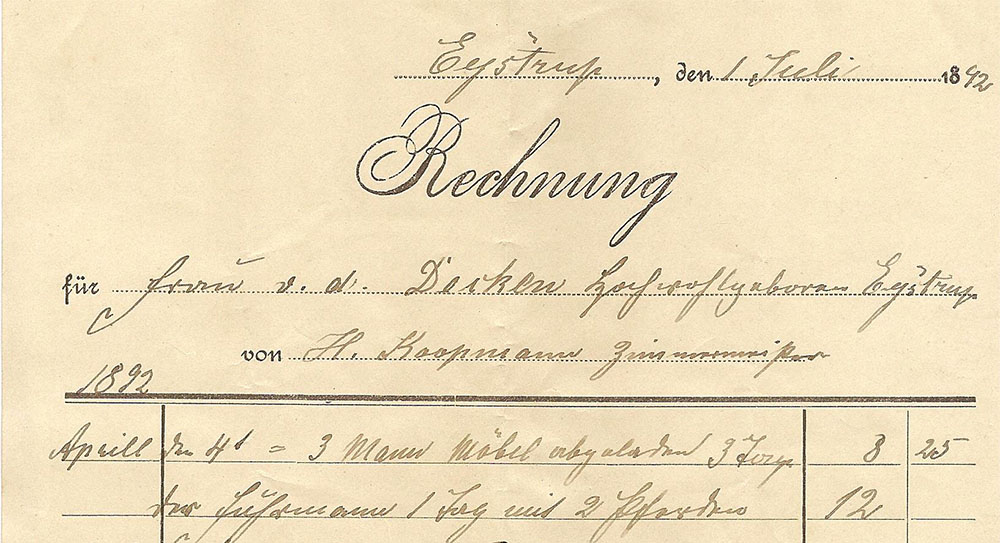 Eystrup, den 1 Juli 1892
Rechnung
für Frau v. d. Decken Hochwohlgeboren Eystrup
von H. Koopmann Zimmermeister
1892
Aprill den 4t = 3 Mann Möbel abgeladen 3 8 25
der Fuhrmann 1 Tag mit 2 Pferden 12